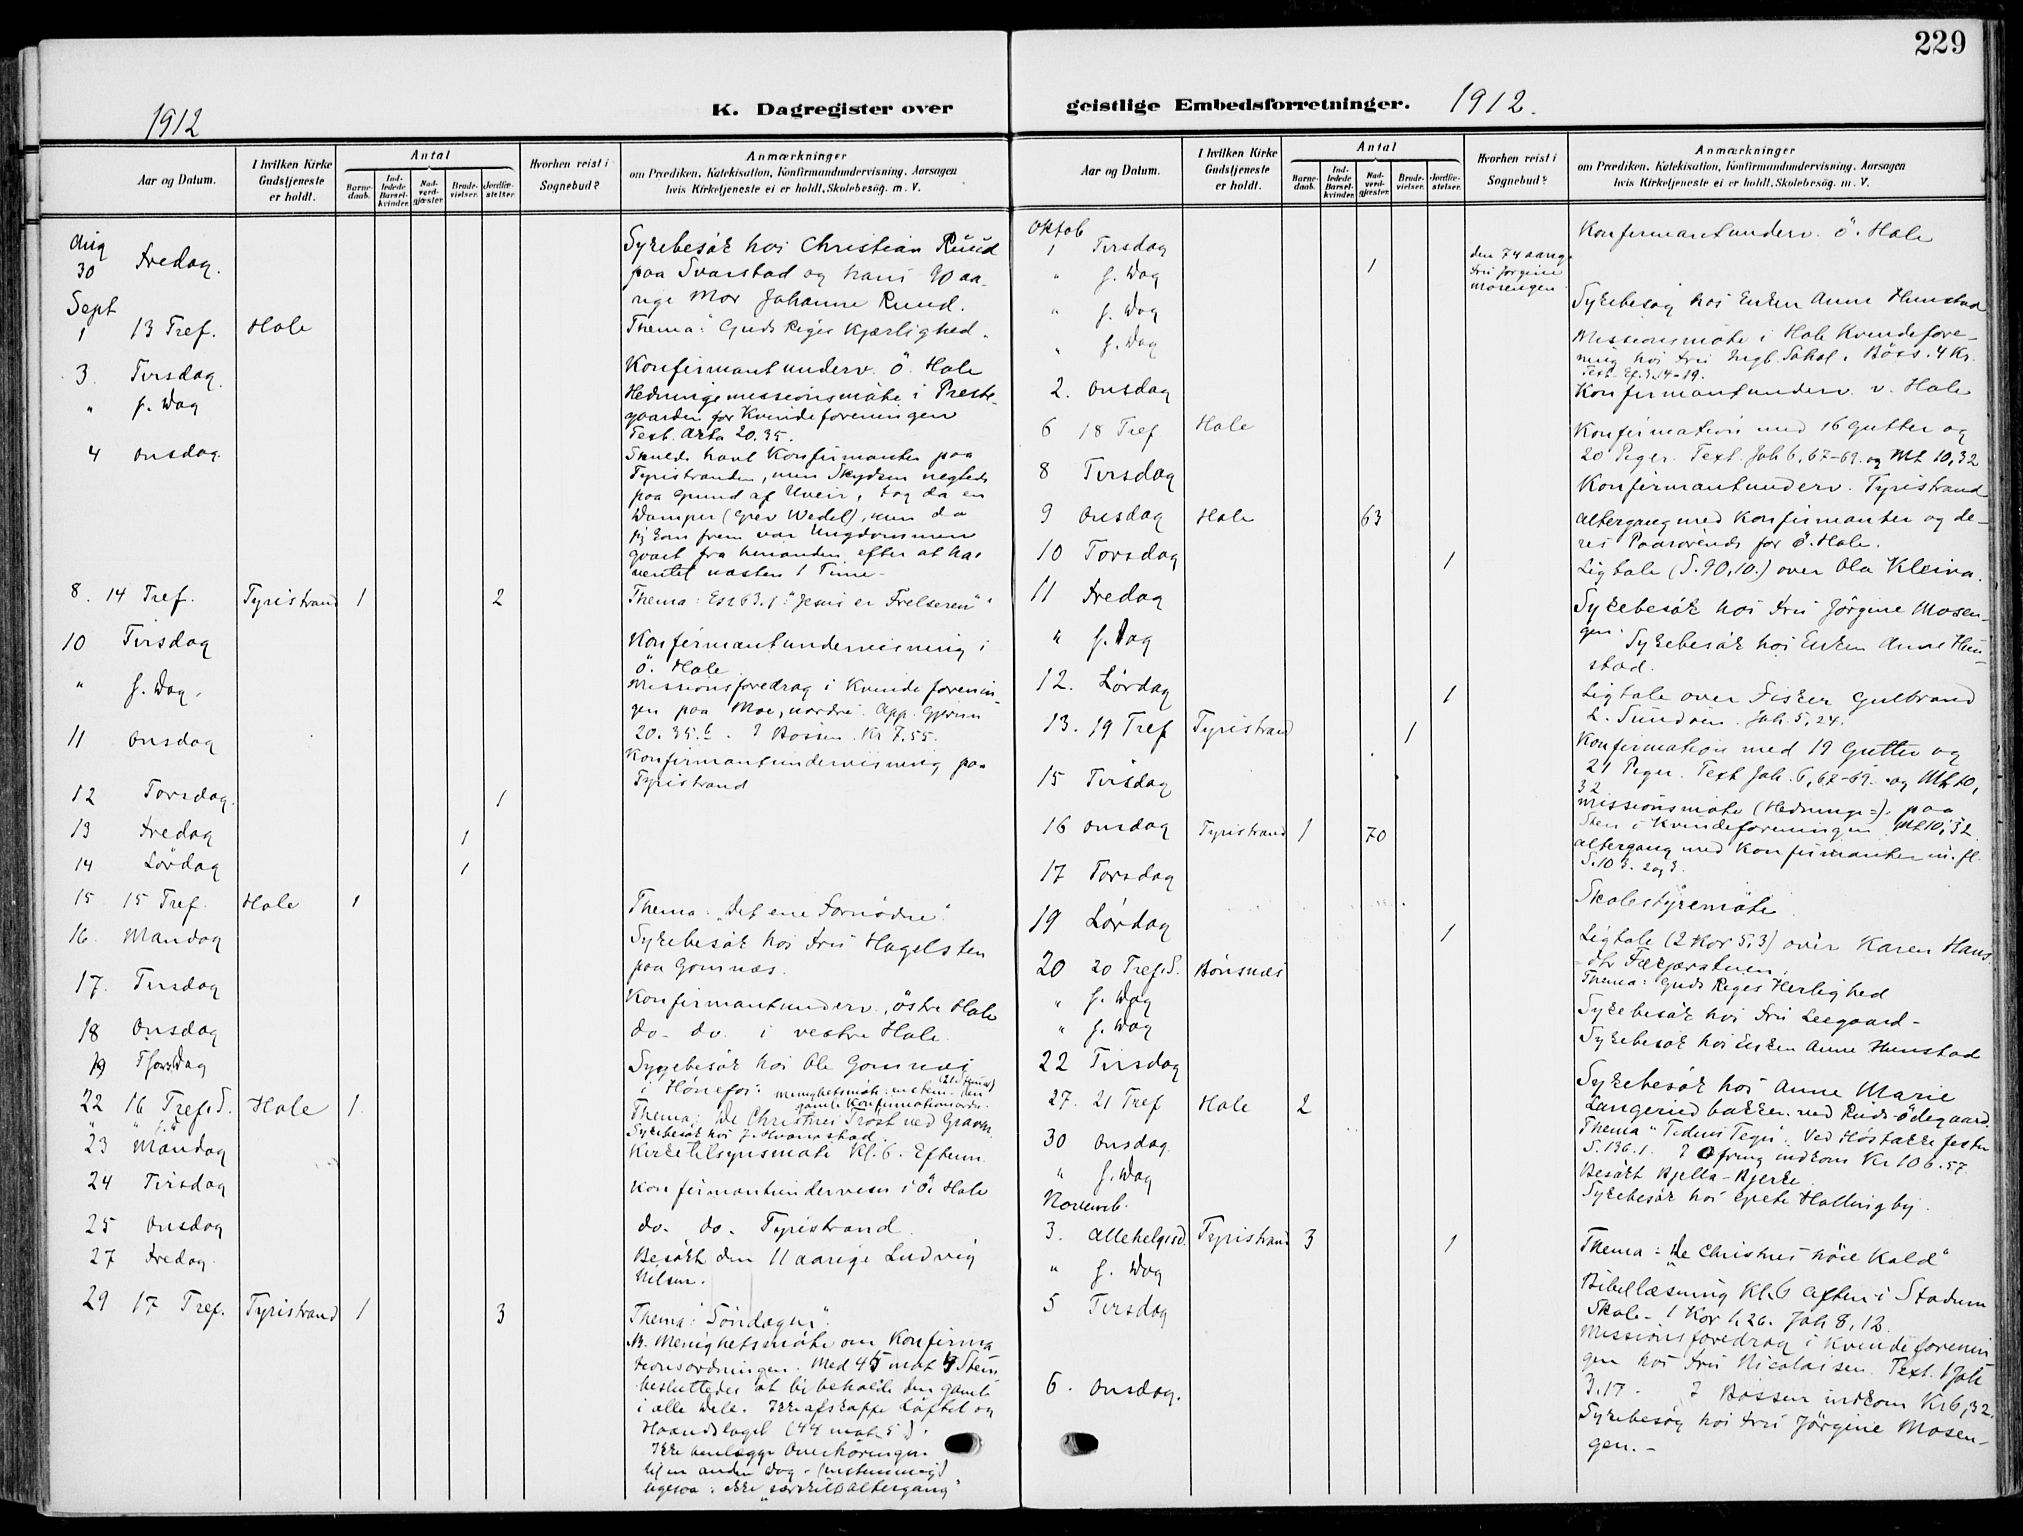 229
1912
K. Dagregister over
geistlige Embedsforretninger. 1912.
Aar og Datum.
I hvilken Kirke Gudstjeneste er holdt.
Antal
Barne-daab.
Ind-ledede Barsel-kvinder.
Nad-verd-gjæster.
Brude-vielser.
Jordfæ-stelser.
Hvorhen reist i Sognebud?
Anmærkninger
om Prædiken, Katekisation, Konfirmandundervisning, Aarsagen
hvis Kirketjeneste ei er holdt, Skolebesög. m. V.
Aug
30 Fredag. Sykebesök hos Christian Ruud
paa Svarstad og hans 90 aa-
rige Mor Johanne Ruud.
Sept
1 13 Tref. Hole Thema: Guds Riges Kjærlighed.
3. Tirsdag. Konfirmantunderv. Ö. Hole
" s. Dag Hedningemissionsmöte i Preste-
gaarden for Kvindeforeningen
Text. 20.35.
4 Onsdag. Skulde havt Konfirmanter paa
Tyristranden, men Skydsen negtede
paa Grund af Uveir, tog da en
Damper (Grev Wedel), men da
jeg kom frem var Ungdommen
gaaet fra hverandre efter at ha
ventet næsten 1 Time.
8. 14 Tref. Tyristrand 1 2 Thema: Es. 63.1: "Jesus er Frelseren".
10 Tirsdag Konfirmantundervisning i
Ö. Hole
" s. Dag. Missionsforedrag i Kvindeforenin-
gen paa Moe, nordre. Ap. Gjern
20.35. I Bössen Kr 7.55.
11 Onsdag Konfirmantundervisning paa
Tyristrand
12 Torsdag. 1
13 Fredag 1
14 Lördag 1
15. 15 Tref. Hole 1 Thema: "Det ene Fornödne".
16. Mandag Sykebesök hos Fru Hagelsten
paa Gomnæs.
17. Tirsdag Konfirmantunderv., östre Hole
18 Onsdag do. do. i vestre Hole.
19 Torsdag Sygebesök hos Ole Gomnæs
i Hönefos.
22 16 Tref. S. Hole 1. Thema: De Christnes Tröst ved Graven.
" s. D. Sykebesök hos
23 Mandag Kirketilsynsmöte Kl. 6. Efterm.
24 Tirsdag Konfirmantundervisn i Ö. Hole
25 Onsdag do. do. Tyristrand
27 Fredag. Besökt den 11 aarige Ludvig
Nilsen.
29 17 Tref. Tyristrand 1 3 Thema: "Söndagen".
N. Menighetsmöte om Konfirma
tionsordningen. Med 45 mot 4 Stem.
besluttedes at bibeholde den gamle
i alle Dele. Ikke afskaffe Löftet og
Haandslaget (44 mot 5).
Ikke henlægge Overhöringen
til en anden Dag - (enstemmig)
ligesaa: ikke "særskilt altergang"
Aar og Datum.
I hvilken Kirke Gudstjeneste er holdt.
Antal
Barne-daab.
Ind-ledede Barsel-kvinder.
Nad-verd-gjæster.
Brude-vielser.
Jordfæ-stelser.
Hvorhen reist i Sognebud?
Anmærkninger
om Prædiken, Katekisation, Konfirmandundervisning, Aarsagen
hvis Kirketjeneste ei er holdt, Skolebesög. m. V.
Oktob
1 Tirsdag Konfirmantunderv. Ö. Hole
" s. Dag 1 den 74 aarige
Fru Jörgine
Mosengen
" s. Dag Sykebesög hos Enken Anne Hunstad
" s. Dag Missionsmöte i Hole Kvindefore-
ning hos Fru Böss. 4 Kr.
Text Ef. 3,14-19.
2. Onsdag Konfirmantunderv. v. Hole
6 18 Tref Hole Konfirmation med 16 Gutter og
20 Piger. Text. Joh 6,67-69. og Mt 10,32
8 Tirsdag Konfirmantunderv. Tyristrand
9 Onsdag Hole 63 Altergang med Konfirmanter og de-
res Paarörende for Ö. Hole.
10 Torsdag 1 Ligtale (S. 90,10.) over Ola Kleiva.
11 Fredag Sykebesök hos Fru Jörgine Mosen-
gen.
" s. Dag Sykebesök hos Enken Anne Hun-
stad.
12. Lördag 1 Ligtale over Fisker Gulbrand
L. Sundöen. Joh. 5,24.
13. 19 Tref Tyristrand 1 Konfirmation med 19 Gutter og
21 Piger. Text Joh. 6,67-69. og Mt 10,
32
15 Tirsdag Missionsmöte (Hednings=). paa
Sten i Kvindeforeningen. Mt 10,32
16 Onsdag Tyristrand 1 70 Altergang med Konfirmanter m. fl.
S. 103. 2 og 3.
17 Torsdag Skolestyremöte
19 Lördag 1 Ligtale (2 Kor 5,3) over Karen Hans
dtr
20 20 Tref. S. Bönsnæs Thema: Guds Riges Herlighed
" s. Dag Sykebesök hos Fru Leegaard-
" s. Dag Sykebesök hos Enken Anne Hunstad
22 Tirsdag Sykebesök hos Anne Marie
Langeriedbakken. ved Ruds-ödegaard.
27. 21 Tref Hole 2 Thema "Tidens Tegn". Ved Hösttakkefesten
S. 136.1. I Ofring indkom Kr 106.57.
30 Onsdag Besökt Bjella-Bjerke
" s. Dag Sykebesök hos Hallingby.
Novemb.
3. Allehelgesd. Tyristrand 3 1 Thema: "De Christnes höie Kald"
" s. Dag Bibellæsning Kl. 6 Aften i Stadum
Skole - 1 Kor 1,26. Joh 8,12.
5 Tirsdag Missionsforedrag i Kvindeforenin
gen hos Fru Nicolaisen. Text. 1 Joh
3.17. I Bössen indkom Kr 6,32.
6. Onsdag. Sykebesög hos Fru Jörgine Mosen-
gen.-